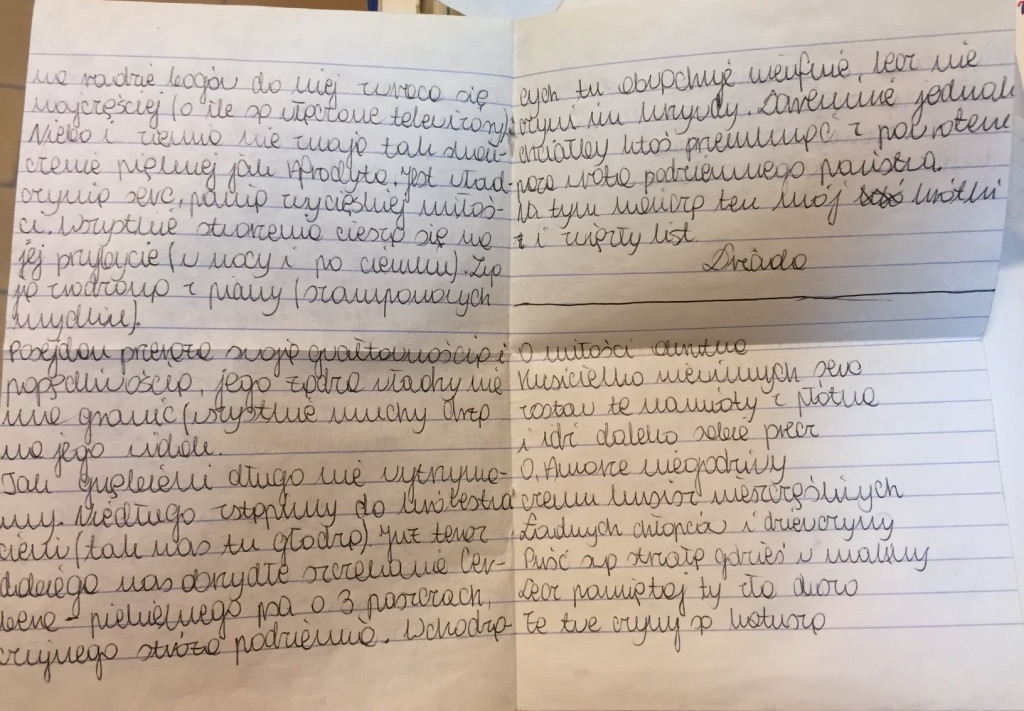 na radzie bogów do niej zwraca się
najczęściej (o ile są włączone telewizory).
Niebo i ziemia nie znają tak
pięknej jak Afrodyta, jest wład-
czynią serc, panią zwycięskiej miłoś-
ci. Wszystkie stworzenia cieszą się na
jej przybycie (w nocy i po ciemku). Zwą
ją zrodzoną z piany (szamponowych
mydlin).
Posejdon przeraża swoją gwałtownością i
popędliwością, jego żądza władzy nie
ma granic (wszystkie muchy drżą
na jego widok.
Tak długo nie wytrzyma-
my. Niedługo wstąpimy do królestwa
cieni (tak nas tu głodzą) już teraz
dobiega nas obrzydłe szczekanie Cer-
bera - piekielnego psa o 3 paszczach,
czujnego stróża podziemia. Wchodzą-
cych tu obwąchuje nieufnie, lecz nie
czyni im krzywdy. Daremnie jednak
chciałby ktoś przemknąć z powrotem
poza wrota podziemnego państwa.
Na tym kończę ten mój krótki
i zwięzły list
Driada
O miłości
Kusicielko niewinnych serc
zostaw te namioty z płótna
i idź daleko sobie precz
O, Amorze niegodziwy
czemu kusisz nieszczęśliwych
Ładnych chłopców i dziewczyny
Puść się strzałę gdzieś w maliny
Lecz pamiętaj ty zła
że twe czyny są katuszą